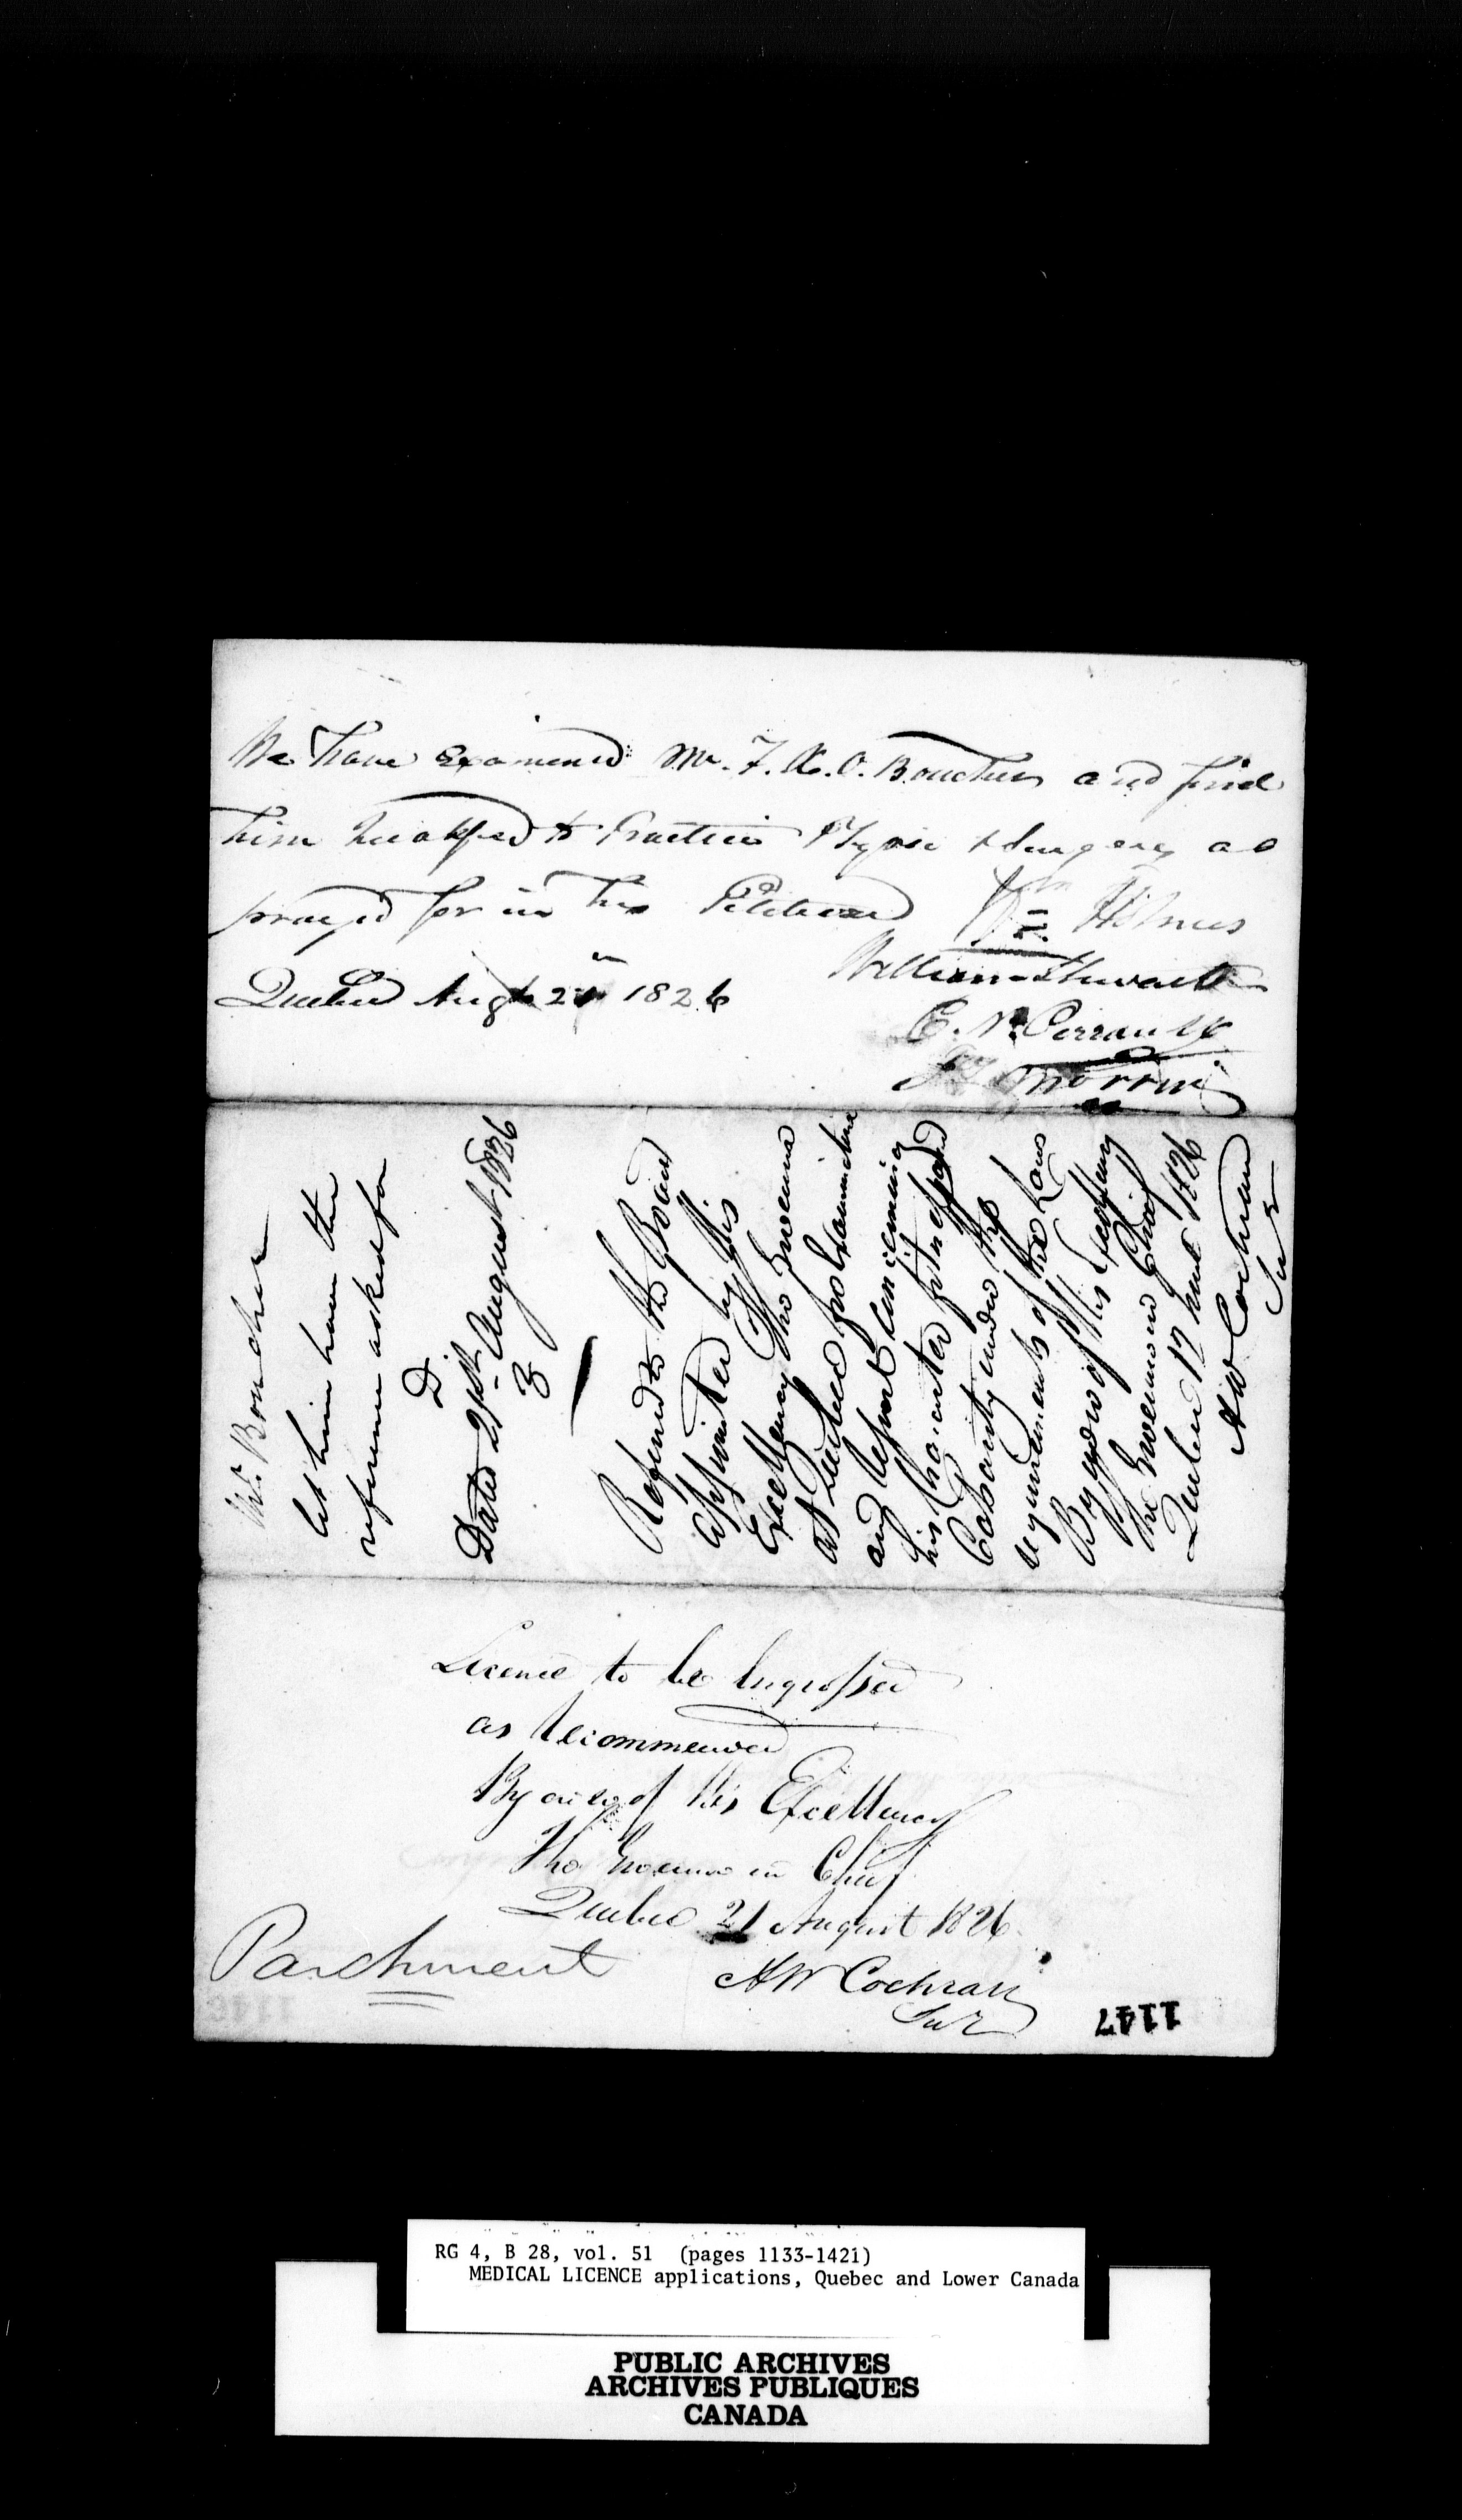 We have examined Mr. F. X. O. Boucher and find
him qualified to Practice Physic & Surgery as
prayed for in his Petition
Wm Holmes
William Thwaite
Quebec Augt 21 1826
C. N. Perrault
Morrin
Mr. Boucher
let him have the
reference asked for
D
Dated 21st August 1826
3
Referred to the Board
appointed by His
Excellency The Governor
at Quebec for Examination
and report concerning
his character fitness and
Capacity under the
requirements of the Law
By order of His Excellency
the Governor in Chief
Quebec 17 1826
AW Cochran
Secy
Licence to be Engrossed
as recommended
By order of His Excellency
The Governor in Chief
Quebec 21 August 1826
Parchment
AW Cochran
Secy
1147
RG 4, B 28, vol. 51 (pages 1133-1421)
MEDICAL LICENCE applications, Quebec and Lower Canada
PUBLIC ARCHIVES
ARCHIVES PUBLIQUES
CANADA